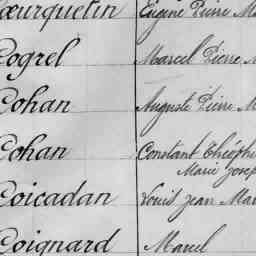 Cœurquetin Eugène Pierre Ma
Cogrel Marcel Pierre
Cohan Auguste Pierre M
Cohan Constant Théoph
Marie Josep
Coicadan Louis Jean Mar
Coignard Marcel